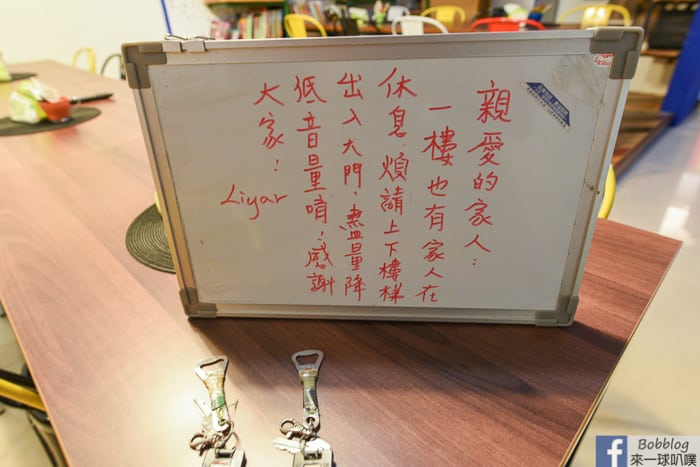 親愛的家人：
一樓也有家人在
休息，煩請上下樓梯
出入大門，盡量降
低音量唷！感謝
大家！
Liyar
Bobblog
來一球叭噗